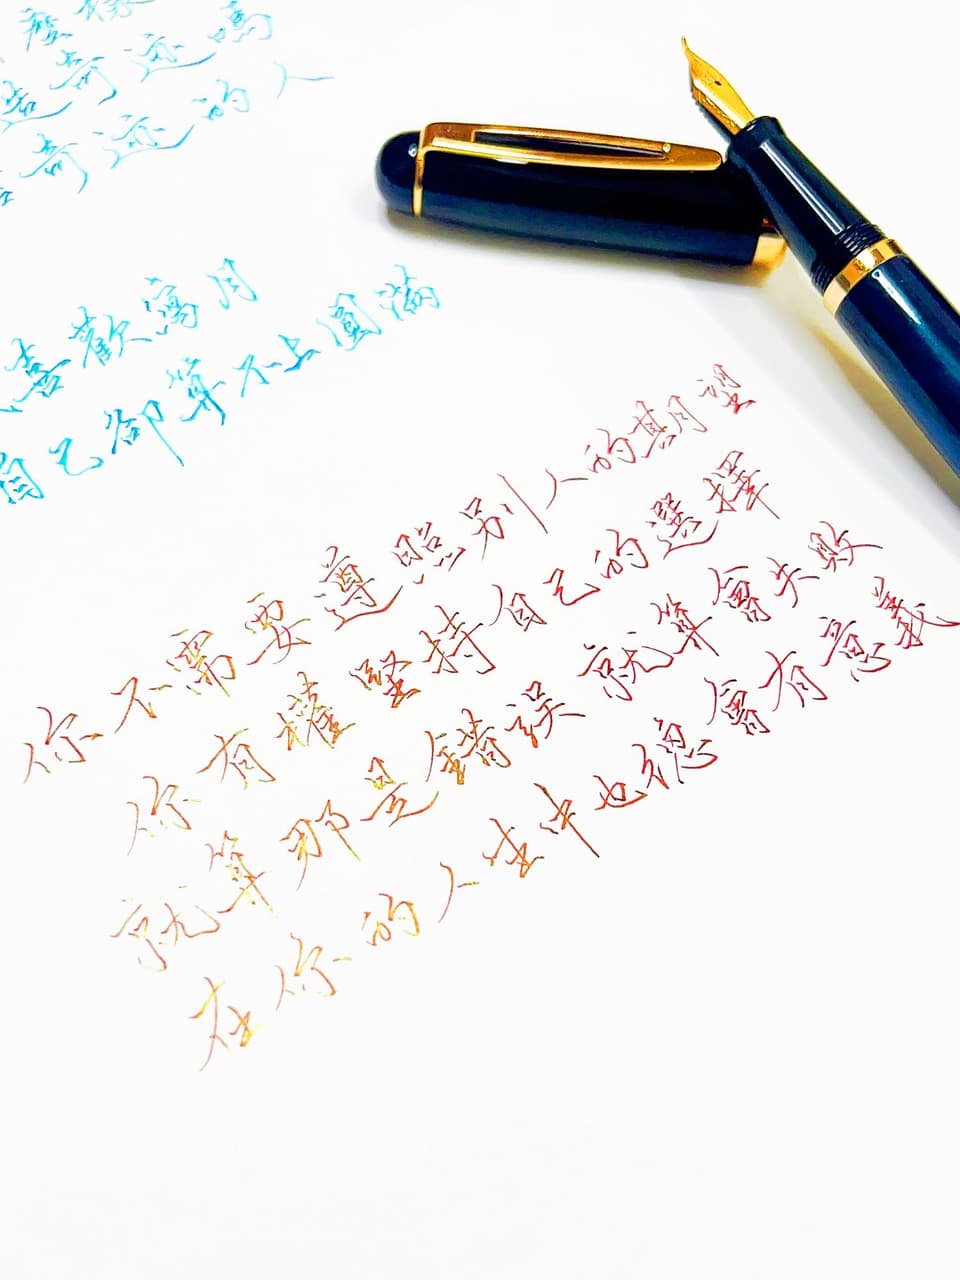 奇迹嗎
奇迹的人
喜歡寫月
自己卻算不上圓滿
你不需要遵照別人的期望
你有權堅持自己的選擇
就算那是錯誤 就算會失敗
在你的人生中也總會有意義